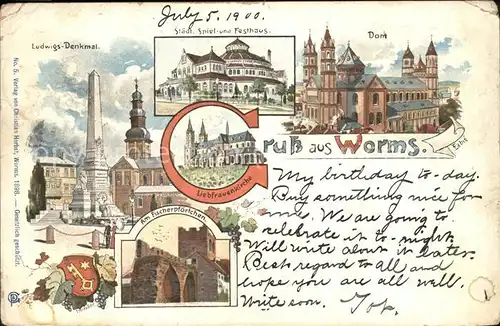 July 5. 1900.
Ludwigs-Denkmal.
Städt. Spiel- und Festhaus.
Dom
Gruß aus Worms.
Liebfrauenkirche
Am Fischerpförtchen.
No. 5. Verlag von Christian Herbst, Worms. 1898. — Gesetzlich geschützt.
My birthday to-day.
Buy something nice for
me. We are going to
celebrate it to-night.
Will write about it later.
Best regard to all and
hope you are all well.
Write soon.